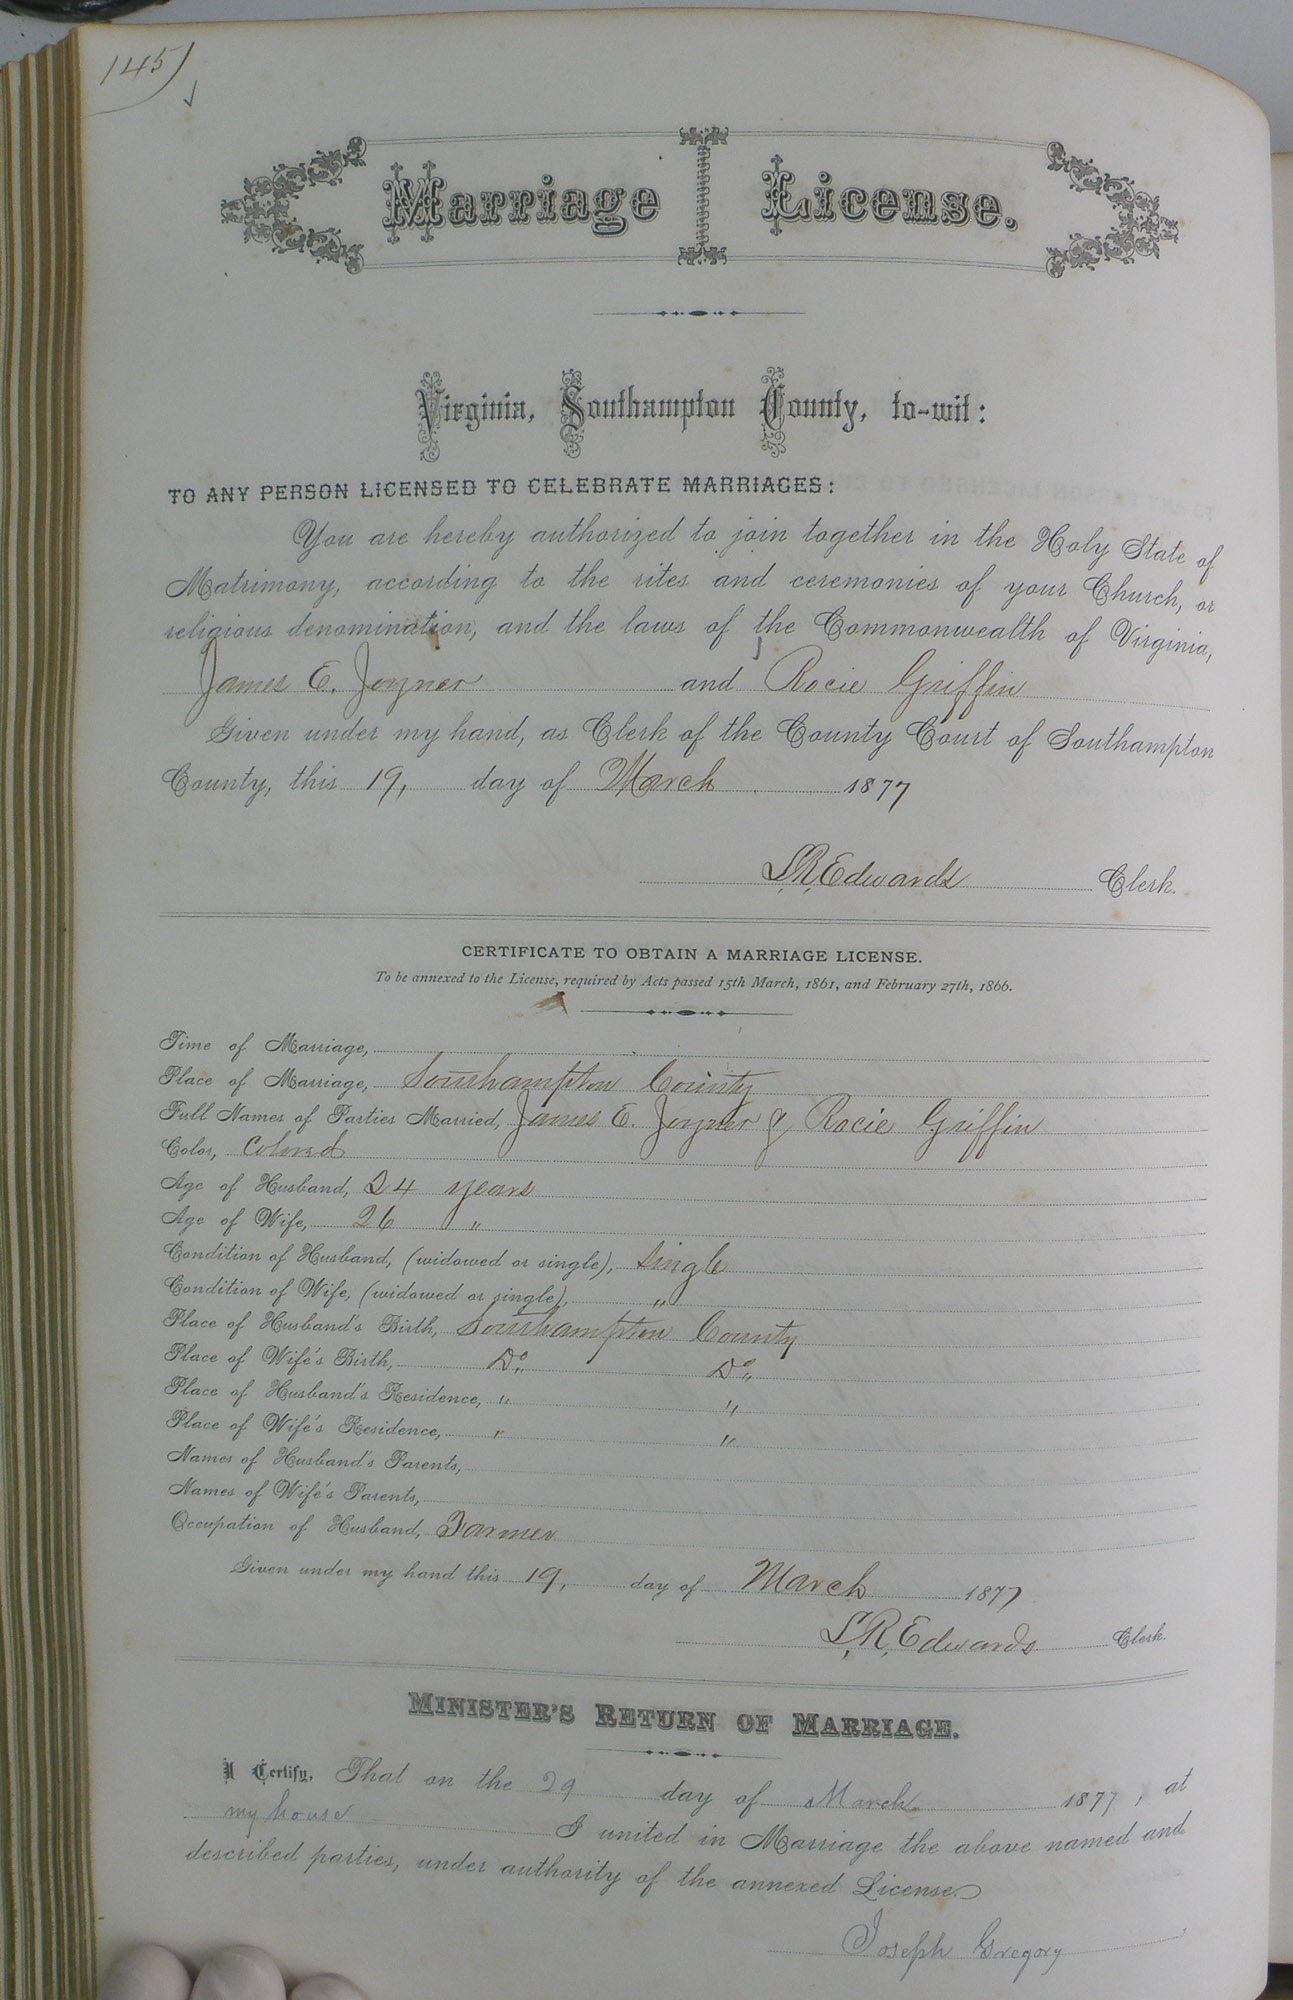 145)
Marriage License.
Virginia, Southampton County, to-wit:
TO ANY PERSON LICENSED TO CELEBRATE MARRIAGES:
You are hereby authorized to join together in the Holy State of
Matrimony, according to the rites and ceremonies of your Church, or
religious denomination, and the laws of the Commonwealth of Virginia,
James E. Joyner and Rocie Griffin
Given under my hand, as Clerk of the County Court of Southampton
County, this 19, day of March 1877
L.R. Edwards Clerk.
CERTIFICATE TO OBTAIN A MARRIAGE LICENSE.
To be annexed to the License, required by Acts passed 15th March, 1861, and February 27th, 1866.
Time of Marriage,
Place of Marriage, Southampton County
Full Names of Parties Married, James E. Joyner & Rocie Griffin
Color, Colored
Age of Husband, 24 years
Age of Wife, 26 "
Condition of Husband, (widowed or single), Single
Condition of Wife, (widowed or single), "
Place of Husband's Birth, Southampton County
Place of Wife's Birth, Do Do
Place of Husband's Residence, " "
Place of Wife's Residence, " "
Names of Husband's Parents,
Names of Wife's Parents,
Occupation of Husband, Farmer
Given under my hand this 19, day of March 1877
L.R. Edwards Clerk.
MINISTER'S RETURN OF MARRIAGE.
I Certify, That on the 29 day of March 1877, at
my house I united in Marriage the above named and
described parties, under authority of the annexed License.
Joseph Gregory